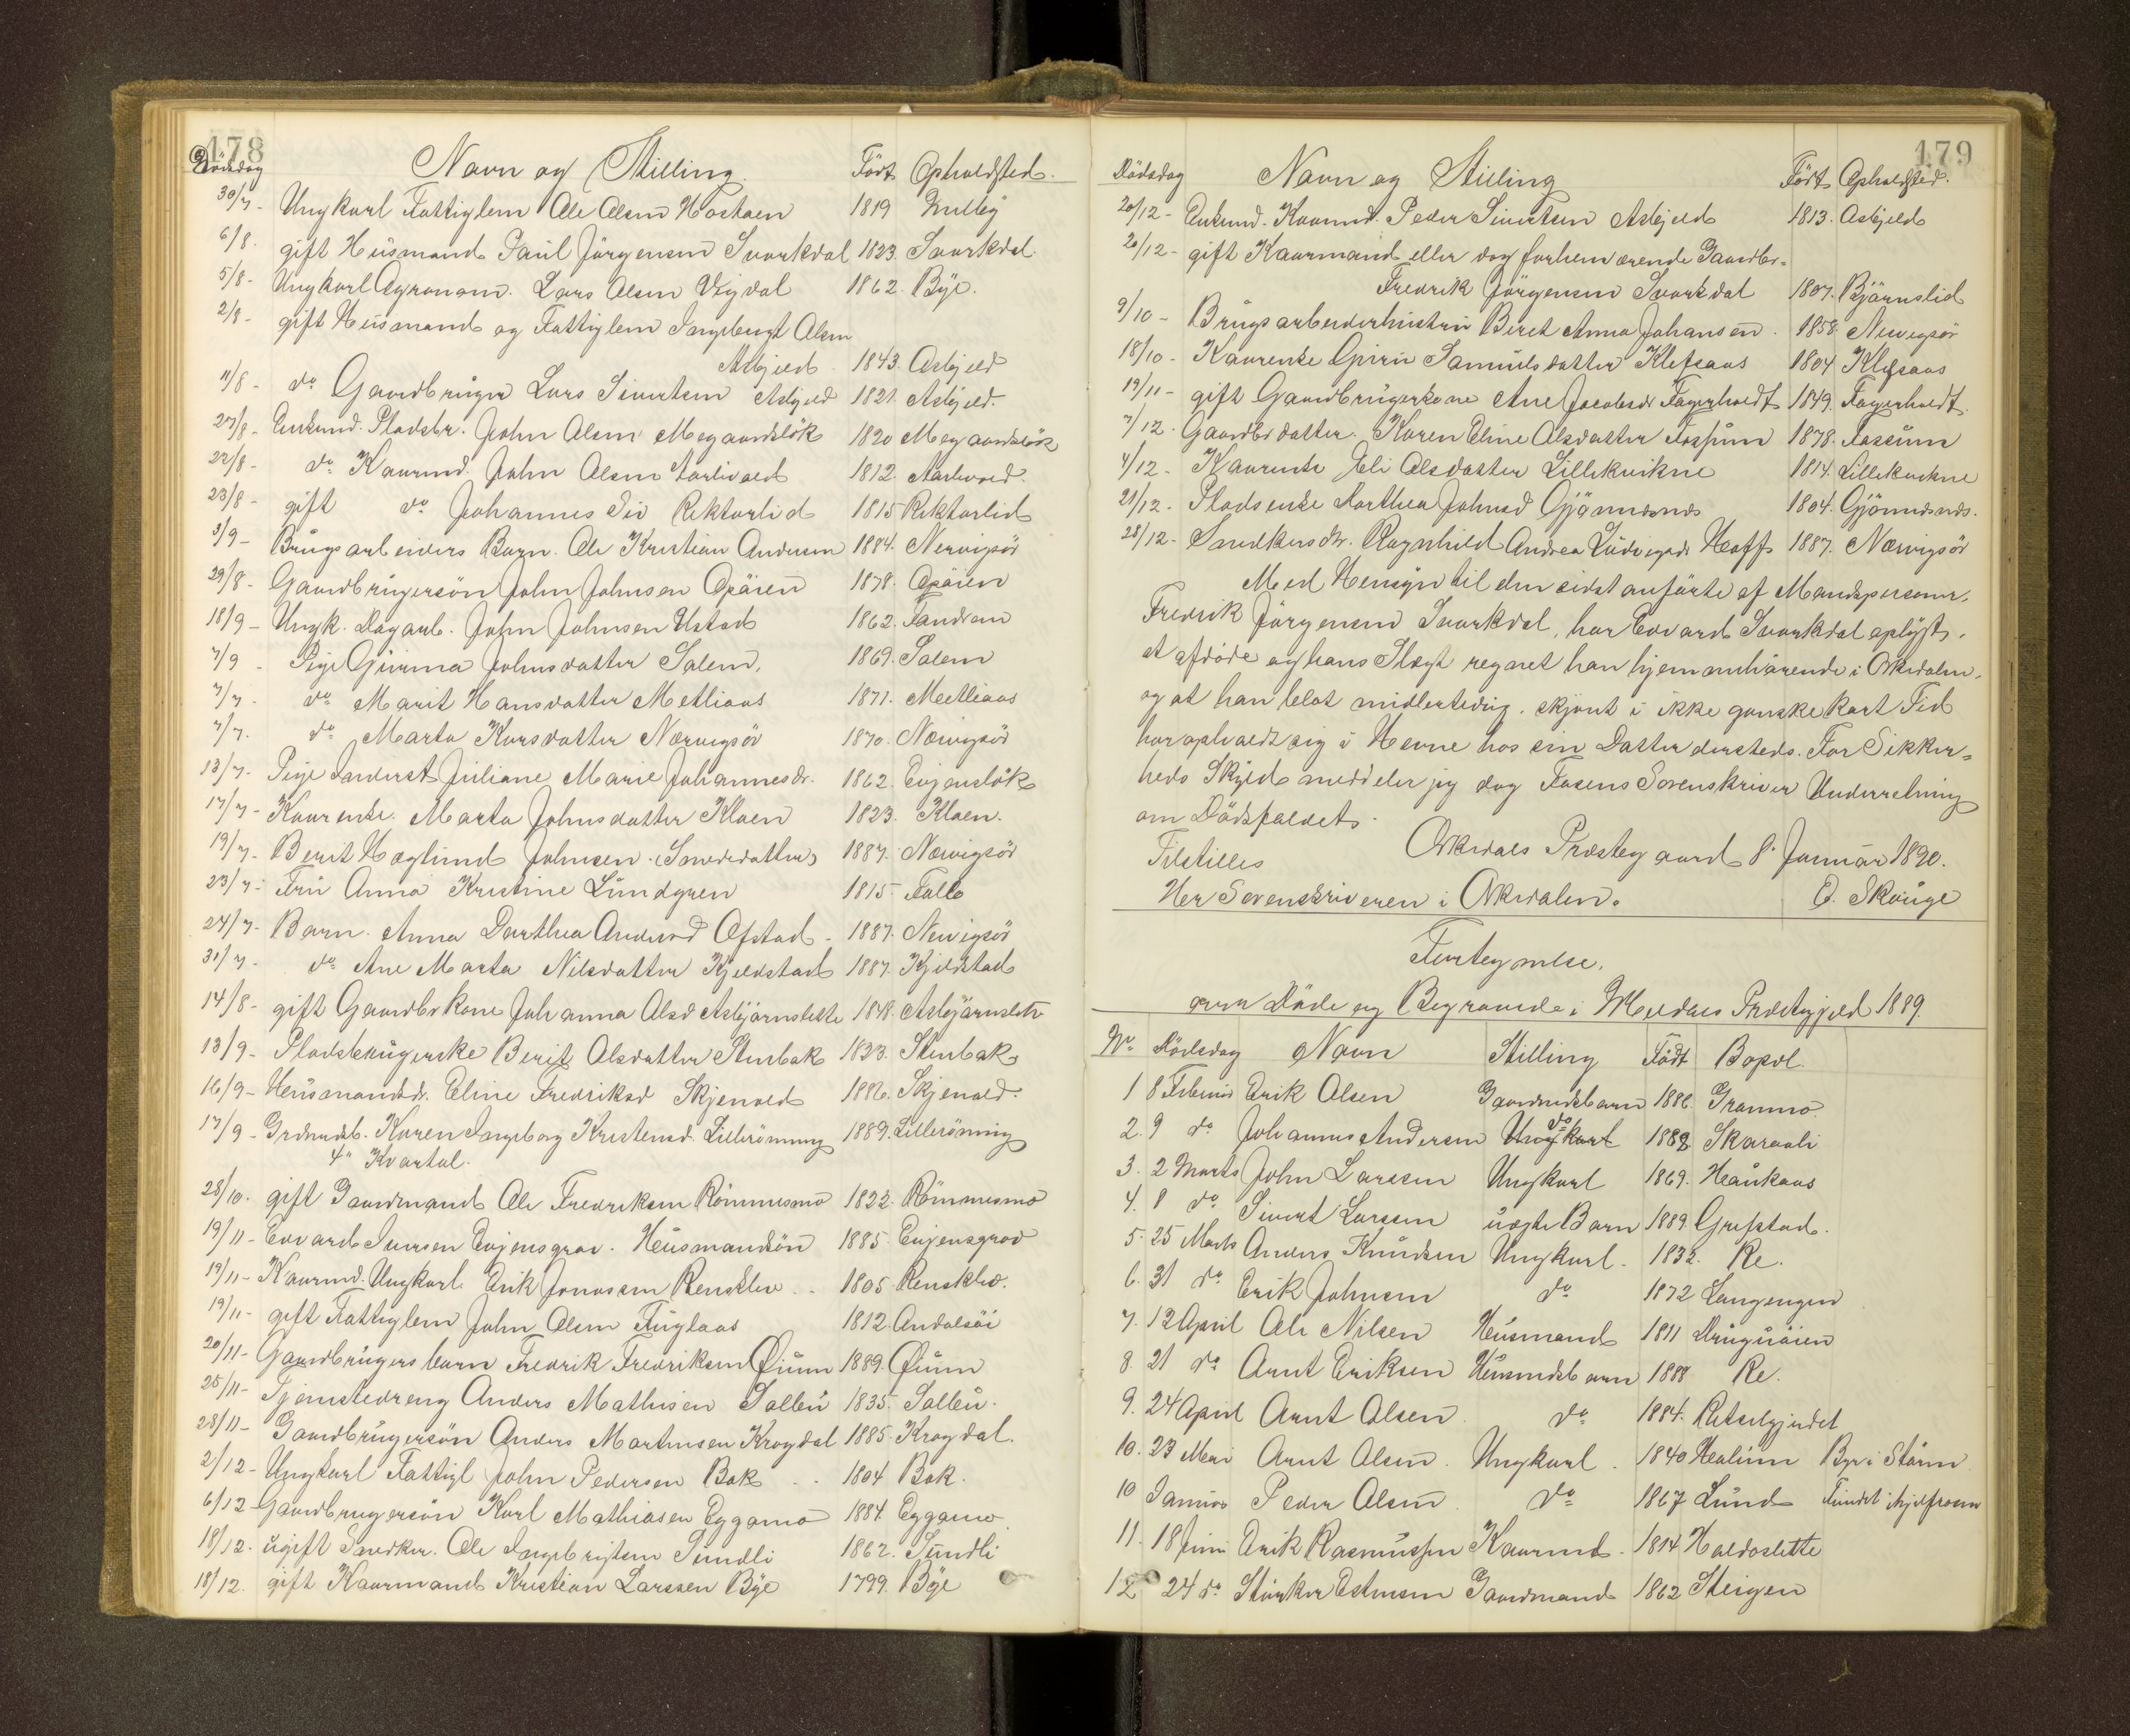 178
Dödsdag Navn og Stilling. Födt Opholdsted.
30/7 - Ungkarl Fattiglem Ole Olsen Hostoen 1819 Melby
6/8. gift Husmand Paul Jörgensen Svorkdal 1823. Svorkdal.
5/8 - Ungkarl Agronom. Lars Olsen Vigdal 1862. Bye.
2/8 - gift Husmand og Fattiglem Ingebrigt Olsen
Asbjeld. 1843. Asbjeld
11/8 - do Gaardbruger Lars Sivertsen Asbjeld 1821. Asbjeld.
27/8 - Enkemd. Pladsbr. John Olsen Megaardslök 1820 Megaardslök
22/8 - do Kaarmd. John Olsen Aarlivold 1812. Aarlivold.
23/8 - gift do Johannes Siv Riktarlid 1815 Riktarlid
3/9 - Brugsarbeiders Barn. Ole Kristian Andersen 1884. Nervigsör
29/8 - Gaardbrugersön John Johnsen Opöien 1878. Opöien
18/9 - Ungk. Dagarb. John Johnsen Ustad 1862. Fandrem
7/9 - Pige Gurina Johnsdatter Solem. 1869. Solem
7/7. do Marit Hansdatter Metliaas 1871. Meetliaas
7/7. do Marta Larsdatter Nærvigsör 1870. Nærvigsör
13/7. Pige Inderst Juliane Marie Johannesdr. 1862. Evjenslök
17/7 - Kaarenke. Marta Johnsdatter Kloen 1823. Kloen.
19/7. Berit Hoglund Johnsen. (Smeddatter) 1887. Nærvigsör
23/7. Fru Anna Kristine Lundgren 1815 Follo
24/7 - Barn. Anna Dorthea Andersd Ofstad - 1887. Nervigsör
31/7 - do Ane Marta Nilsdatter Kjeldstad 1887. Kjeldstad
14/8 - gift Gaardbrkone Johanna Olsd Asbjörnslette 1848. Asbjörnslette
13/9 - Pladsbrugerske Berit Olsdatter Stenbak 1823. Stenbak
16/9 - Husmandsdr. Eline Fredriksd Skjenald 1886. Skjenald.
17/9 - Grdmdsb. Karen Ingeborg Kristensd. Lillerönning 1889. Lillerönning
4" Kvartal.
28/10. gift Gaardmand Ole Fredriksen Römmesmo 1822. Römmesmo
19/11 - Edvard Iversen Evjensgrav. Husmandsön 1885. Evjensgrav
19/11 - Kaarmd. Ungkarl. Erik Jonasen Rensklev.. 1805 Rensklev.
19/11 - gift Fattiglem John Olsen Fuglaas 1812. Andalsöi
20/11 - Gaardbrugers barn Fredrik Fredriksen Öium 1889. Öium
25/11 - Tjenestedreng Anders Mathisen Solbu 1835. Solbu.
28/11 - Gaardbrugersön Anders Martinsen Krogdal 1885. Krogdal.
2/12 - Ungkarl Fattigl John Pedersen Bak .. 1804 Bak.
6/12 - Gaardbrugersön Karl Mathiasen Eggamo 1884. Eggamo
18/12. ugift Snedker. Ole Ingebrigtsen Sundli 1862. Sundli
18/12. gift Kaarmand Kristian Larssen Bye 1799. Bye
179
Dödsdag Navn og Stilling Födt Opholdsted.
20/12 - Enkemd. Kaarmd. Peder Sivertsen Asbjeld 1813. Asbjeld
20/12 - gift Kaarmand eller dog forhenværende Gaardbr.
Fredrik Jörgensen Svorkdal 1807. Bjärnslid
9/10 - Brugsarbeiderhustru Beret Anna Johansen. 1858. Nervigsör
18/10 - Kaarenke Guru Samuelsdatter Klefsaas 1804 Klefsaas
19/11 - gift Gaardbrugerkone Ane Jacobsdr Fagerholdt 1849. Fagerholdt.
7/12. Gaardbrdatter. Karen Eline Olsdatter Fossum 1878. Fossum
4/12 - Kaarenke Eli Olsdatter Lillekvikne 1814. Lillekvikne
21/12. Pladsenke Dorthea Johnsd Gjönnesnes 1804. Gjönnesnes.
28/12 - Snedkersdr. Ragnhild Andrea Ludvigsdr Hoff 1887. Nærvigsör
Med Hensyn til den sidst anförte af Mandspersoner,
Fredrik Jörgensen Svorkdal, har Edvard Svorkdal oplyst,
at afdöde og hans Slægt regnet han hjemmehörende i Orkedalen,
og at han blot midlertidig. skjönt i ikke ganske kort Tid
har opholdt sig i Hevne hos sin Datter dersteds. For Sikker=
heds Skyld meddeler jeg dog Fosens Sorenskriver Underretning
om Dödsfaldet.
Tilstilles Orkedals Præstegaard 8. Januar 1890.
Her Sorenskriveren i Orkedalen. O. Skauge
Fortegnelse.
over Döde og Begravede i Meldals Præstegjeld 1889.
No Dödsdag Navn Stilling Födt Bopæl.
1 8 Februar Erik Olsen Gaardmdsbarn 1888. Granmo
2. 9 do Johannes Andersen Ungkarl do 1882 Skaraali
3. 2 Marts John Larssen Ungkarl 1869. Haukaas
4. 8 do Sivert Larssen uægte Barn 1889. Grefstad.
5. 25 Marts Anders Knudsen Ungkarl. 1832. Re.
6. 31 do Erik Johnsen do 1872 Langengen
7. 12 April Ole Nilsen Husmand 1811 Druguöien
8 21 do Arnt Eriksen Husmdsbarn 1888 Re.
9. 24 April Arnt Olsen. do 1884. Reteelgjerdet
10. 23 Mai Arnt Olsen. Ungkarl. 1840 Healium Byr i Stören
10 Januar Peder Olsen. do 1867 Lund Fundet ihjelfrosen
11. 18 Juni Erik Rasmussen Kaarmd. 1814 Holdoslette
12 24 do Störker Estensen Gaardmand 1862 Steigen